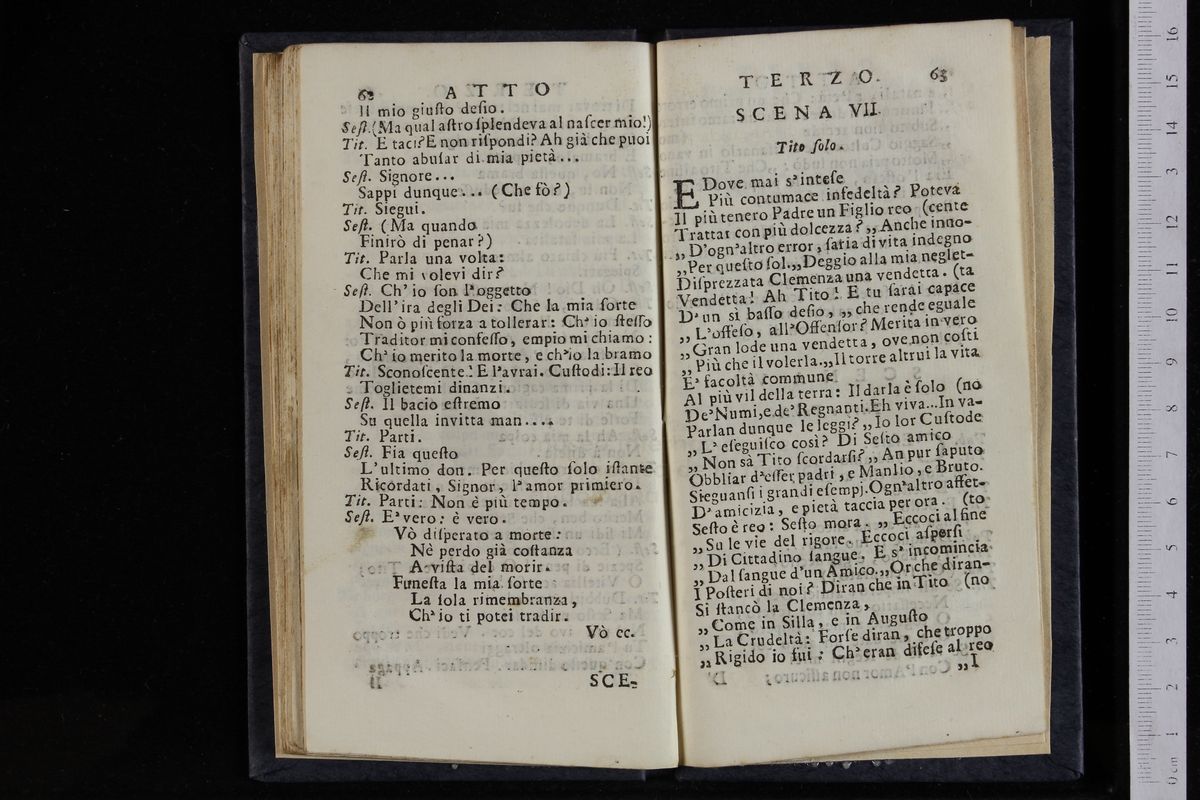 62 ATTO
Il mio giuſto deſio.
Seſt. (Ma qual aſtro ſplendeva al naſcer mio!)
Tit. E taci? E non riſpondi? Ah già che puoi
Tanto abuſar di mia pietà...
Seſt. Signore...
Sappi dunque... (Che fò?)
Tit. Siegui.
Seſt. (Ma quando
Finirò di penar?)
Tit. Parla una volta:
Che mi volevi dir?
Seſt. Ch' io ſon l'oggetto
Dell' ira degli Dei: Che la mia ſorte
Non ò più forza a tollerar: Ch' io ſteſſo
Traditor mi confeſſo, empio mi chiamo:
Ch' io merito la morte, e ch'io la bramo
Tit. Sconoſcente! E l'avrai. Cuſtodi: Il reo
Toglietemi dinanzi.
Seſt. Il bacio eſtremo
Su quella invitta man....
Tit. Parti.
Seſt. Fia queſto
L' ultimo don. Per queſto ſolo iſtante
Ricordati, Signor, l'amor primiero.
Tit. Parti: Non è più tempo.
Seſt. E' vero: è vero.
Vò diſperato a morte:
Nè perdo già coſtanza
A viſta del morir.
Funeſta la mia ſorte
La ſola rimembranza,
Ch' io ti potei tradir.
Vò ec.
SCE-
TERZO. 63
SCENA VII.
Tito ſolo.
E Dove mai s' inteſe
Più contumace infedeltà? Poteva
Il più tenero Padre un Figlio reo (cente
Trattar con più dolcezza? „ Anche inno-
„ D'ogn'altro error, ſaria di vita indegno
„ Per queſto ſol. „ Deggio alla mia neglet-
Diſprezzata Clemenza una vendetta. (ta
Vendetta! Ah Tito! E tu ſarai capace
D' un sì baſſo deſio, „ che rende eguale
„ L'offeſo, all' Offenſor? Merita in vero
„ Gran lode una vendetta, ove non coſti
„ Più che il volerla. „ Il torre altrui la vita
E' facoltà commune
Al più vil della terra: Il darla è ſolo (no
De' Numi, e de' Regnanti. Eh viva... In va-
Parlan dunque le leggi? „ Io lor Cuſtode
„ L' eſeguiſco così? Di Seſto amico
„ Non sà Tito ſcordarſi? „ An pur ſaputo
Obbliar d'eſſer padri, e Manlio, e Bruto.
Sieguanſi i grandi eſempj. Ogn'altro affet-
D' amicizia, e pietà taccia per ora. (to
Seſto è reo: Seſto mora. „ Eccoci al fine
„ Su le vie del rigore. Eccoci aſperſi
„ Di Cittadino ſangue. E s' incomincia
„ Dal ſangue d'un Amico. „ Or che diran-
I Poſteri di noi? Diran che in Tito (no
Si ſtancò la Clemenza,
„ Come in Silla, e in Auguſto
„ La Crudeltà: Forſe diran, che troppo
„ Rigido io fui: Ch' eran difeſe al reo
„ I